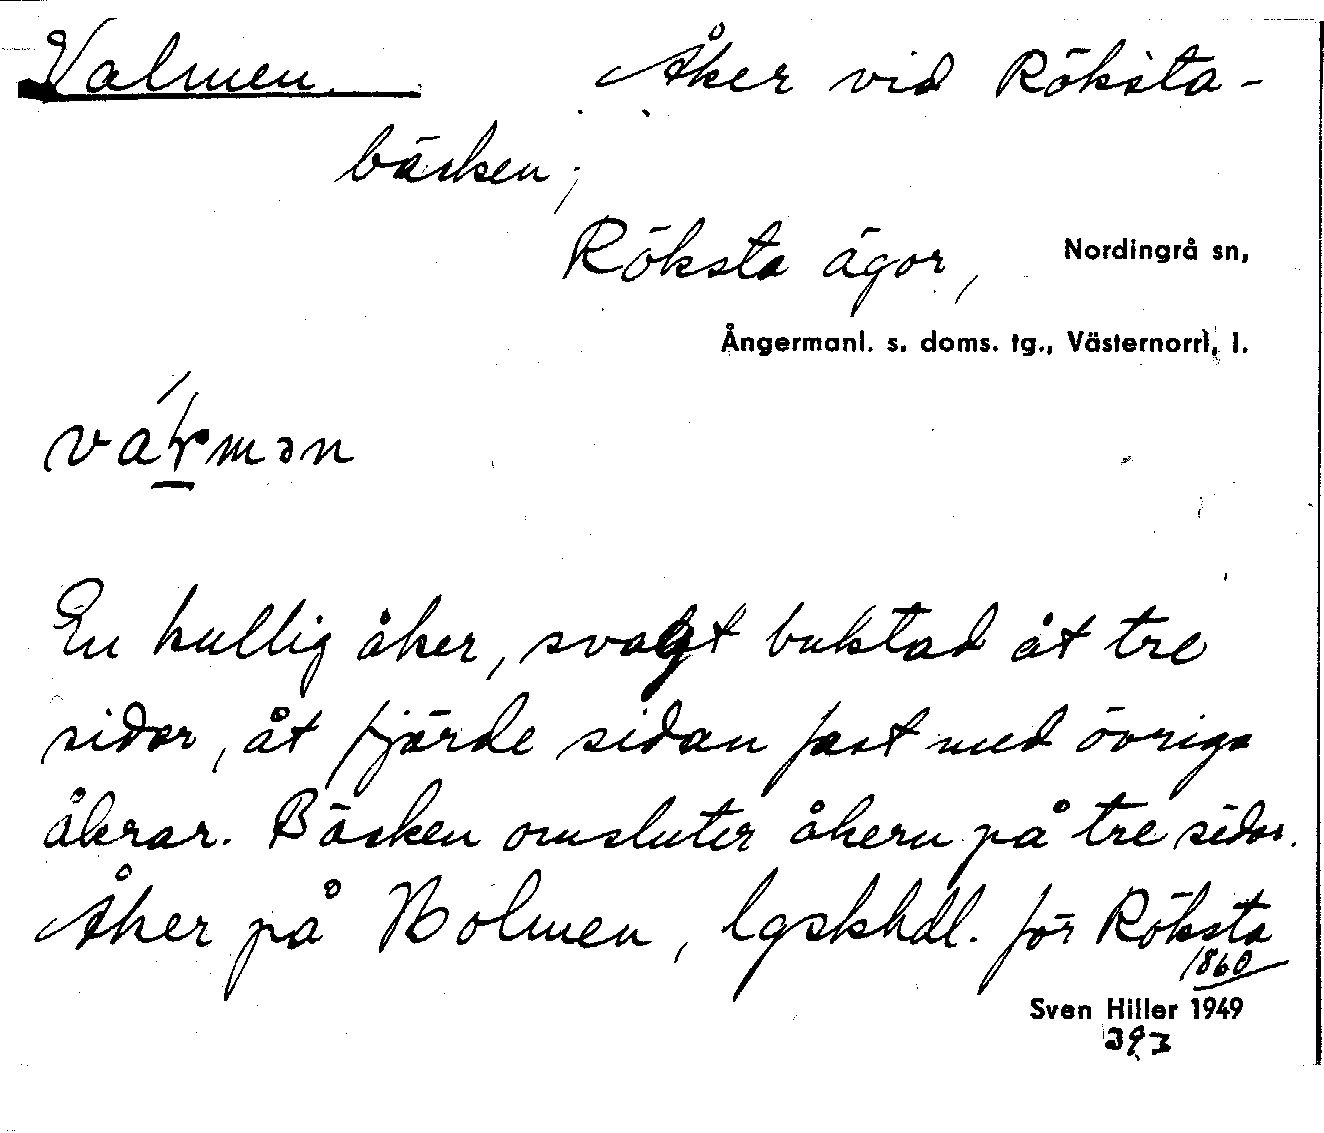 Valmen. Åker vid Röksta-
bäcken;
Röksta ägor, Nordingrå sn,
Ångermanl. s. doms. tg., Västernorrl. l.
En kullig åker, svagt buktad åt tre
sidor, åt fjärde sidan fast med övriga
åkrar. Bäcken omsluter åkern på tre sidor.
Åker på Holmen, lgskhdl. för Röksta
1860
Sven Hiller 1949
393